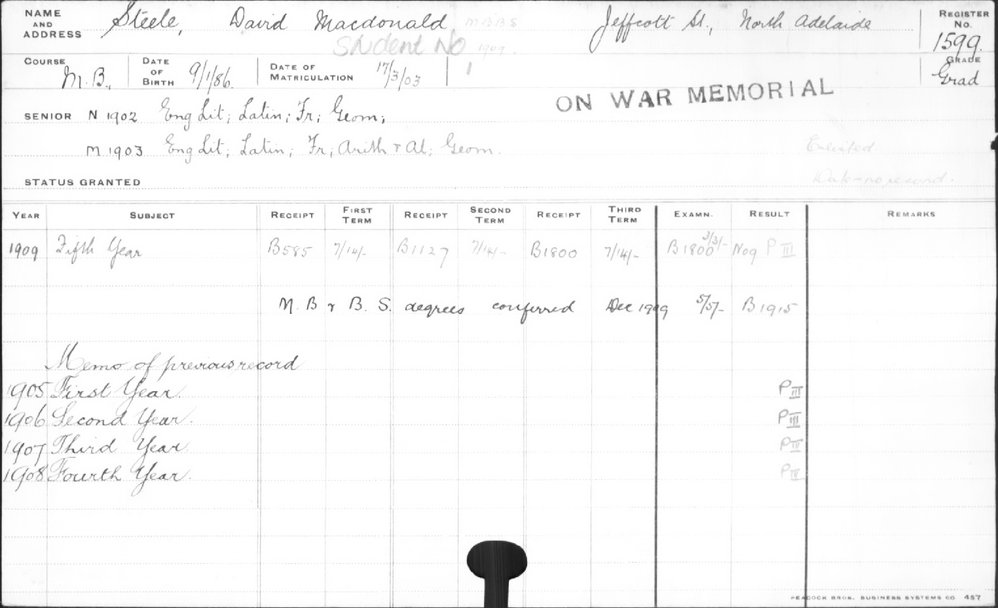 NAME AND ADDRESS Steele, David Macdonald M.B.B.S. Jeffcott St, North Adelaide REGISTER No. 1599.
Student No 1909
COURSE M.B., DATE OF BIRTH 9/1/86. DATE OF MATRICULATION 17/3/03 1 GRADE Grad
ON WAR MEMORIAL
SENIOR N 1902 Eng Lit; Latin; Fr; Geom;
M 1903 Eng Lit; Latin; Fr; Arith & Al; Geom.
Enlisted
Date no record.
STATUS GRANTED
YEAR SUBJECT RECEIPT FIRST TERM RECEIPT SECOND TERM RECEIPT THIRD TERM EXAMN. RESULT REMARKS
1909 Fifth Year B585 7/14/- B1127 7/14/- B1800 7/14/- B1800 3/3/- Nov P III
M.B & B.S. degrees conferred Dec 1909 5/5/- B1915
Memo of previous record
1905 First Year. P III
1906 Second Year. P III
1907 Third Year. P II
1908 Fourth Year. P II
PEACOCK BROS. BUSINESS SYSTEMS CO. 457